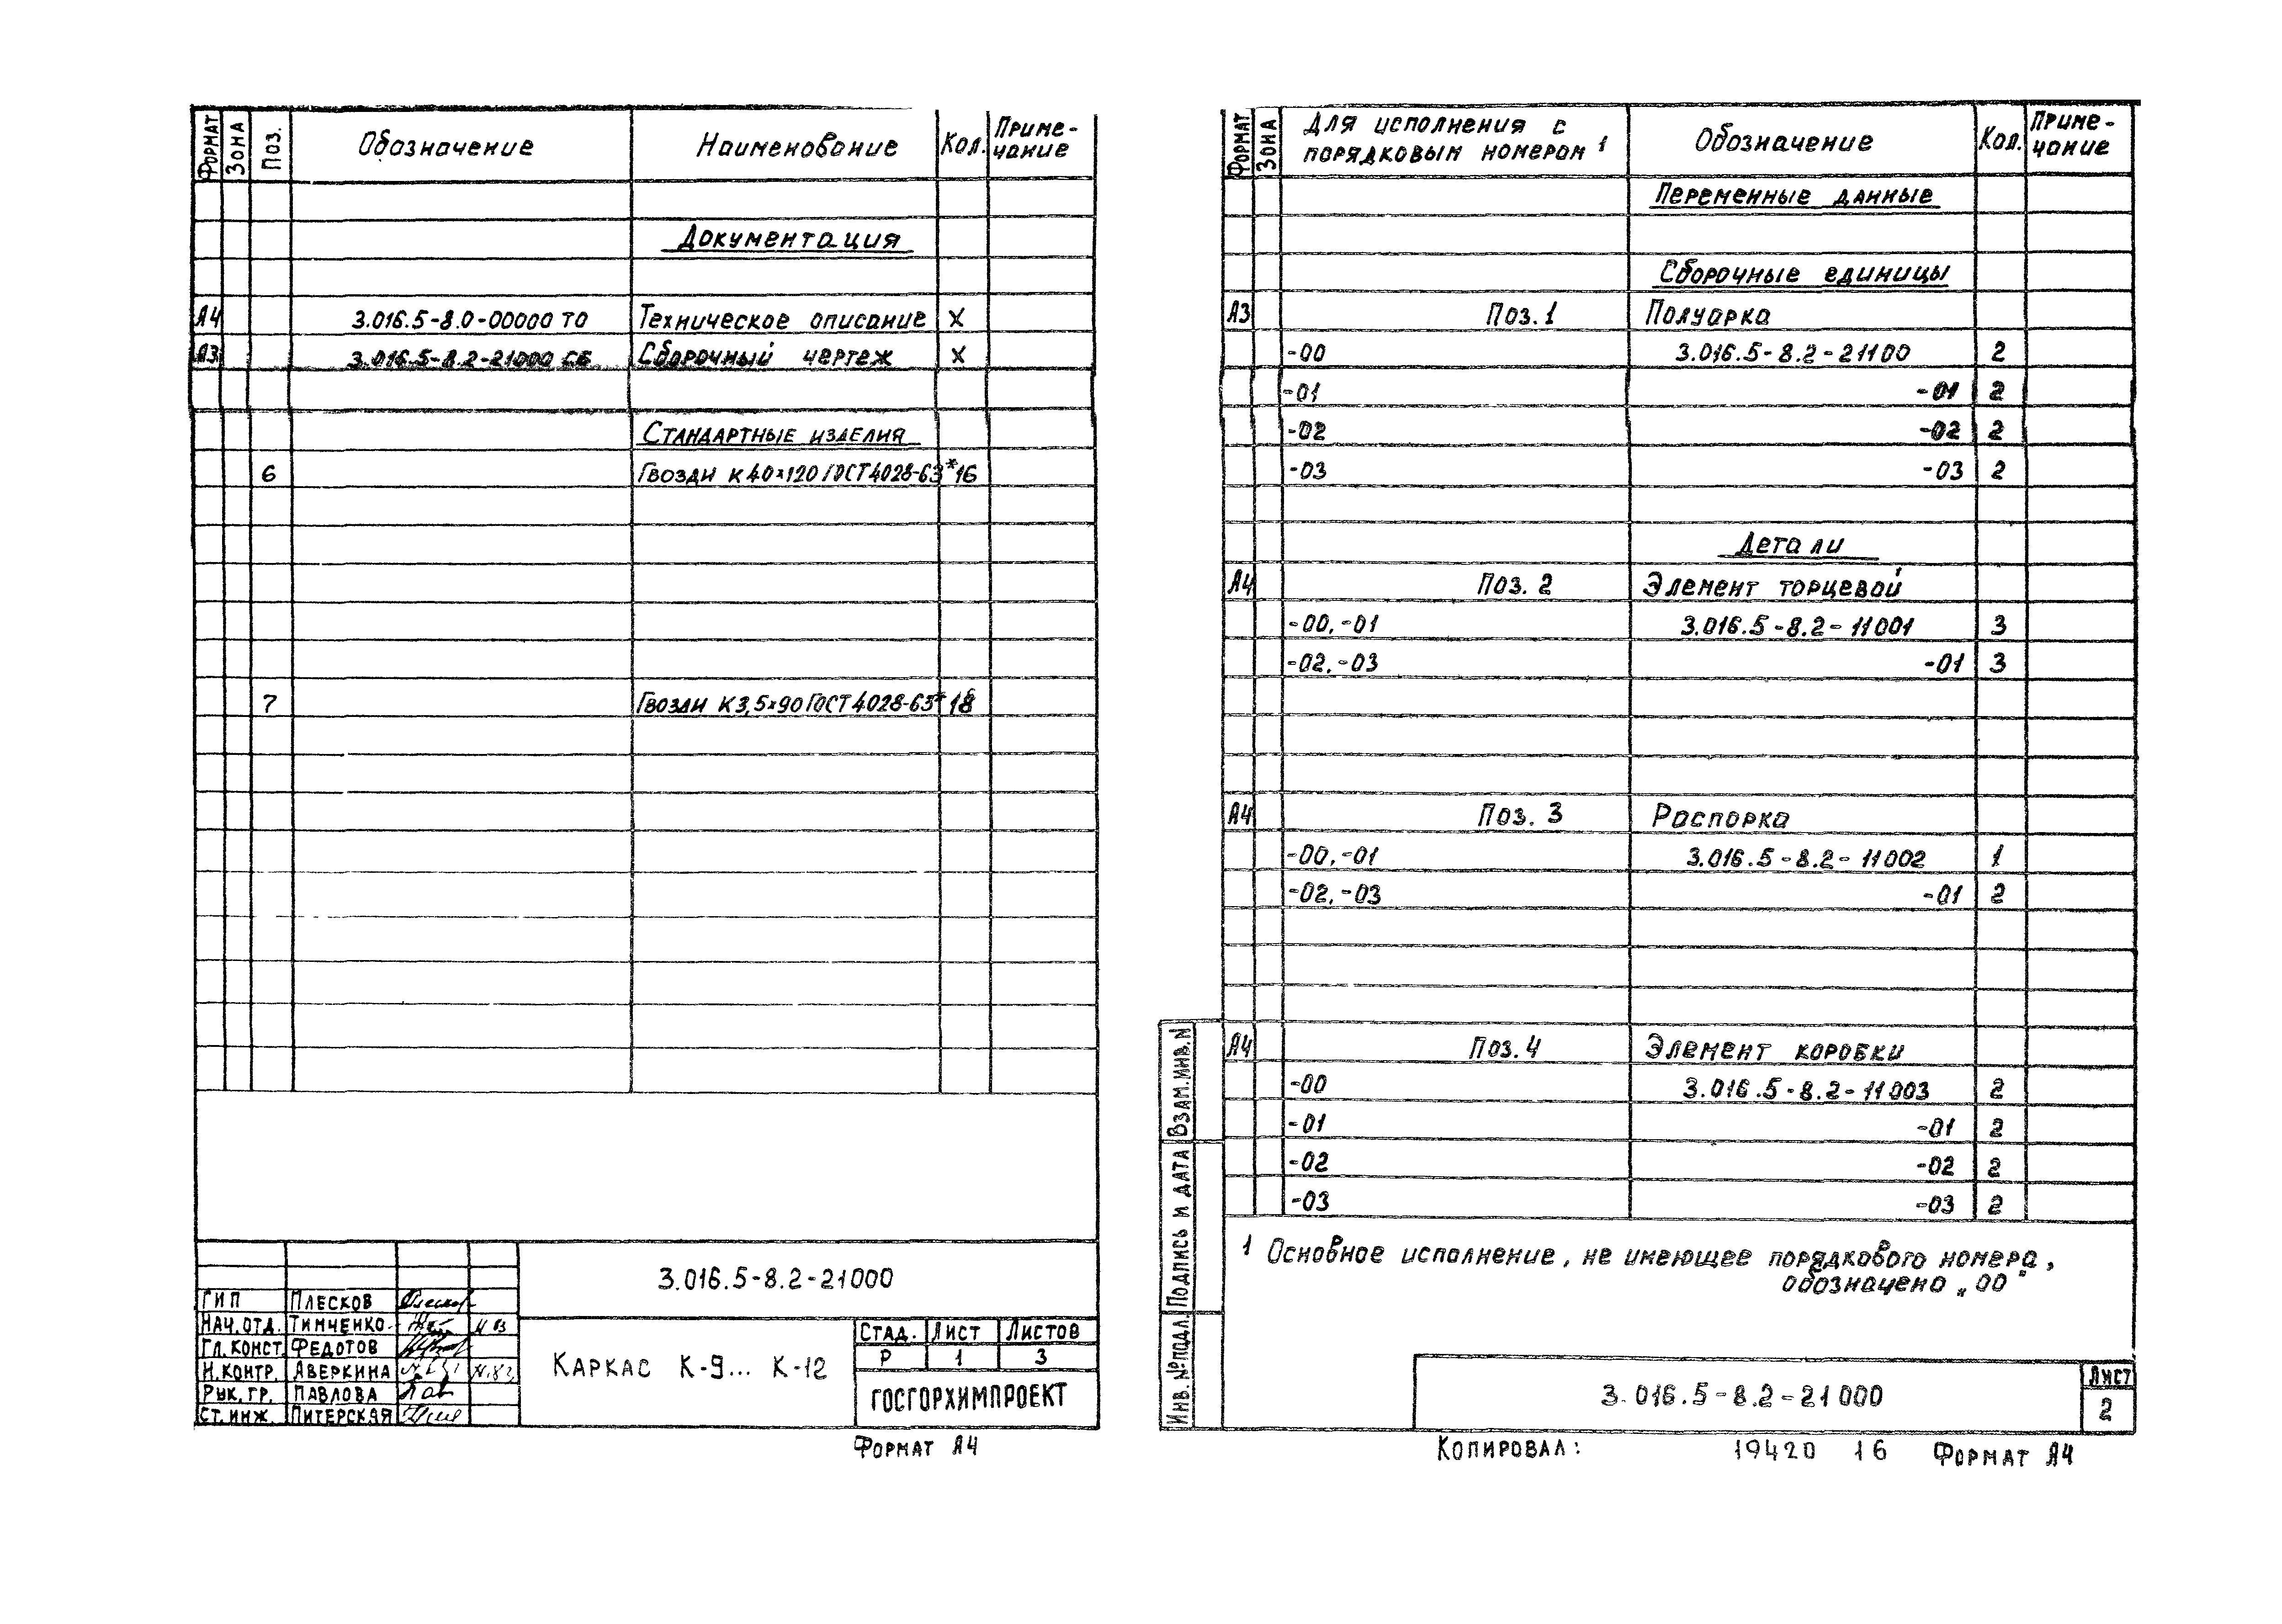 Формат Зона Поз. Обозначение Наименование Кол. Приме-
чание
Документация
А4 3.016.5-8.0-00000 ТО Техническое описание X
А3 3.016.5-8.2-21000 СБ Сборочный чертеж X
Стандартные изделия
6 Гвозди К 4.0×120 ГОСТ 4028-63* 16
7 Гвозди К 3,5×90 ГОСТ 4028-63* 18
3.016.5-8.2-21000
ГИП Плесков
Нач. отд. Тимченко
Гл. конст. Федотов
Н. контр. Аверкина
Рук. гр. Павлова
Ст. инж. Питерская
Каркас К-9... К-12
Стад. Лист Листов
Р 1 3
ГОСГОРХИМПРОЕКТ
Формат А4
Формат Зона Для исполнения с
порядковым номером 1 Обозначение Кол. Приме-
чание
Переменные данные
Сборочные единицы
А3 Поз. 1 Полуарка
-00 3.016.5-8.2-21100 2
-01 -01 2
-02 -02 2
-03 -03 2
Детали
А4 Поз. 2 Элемент торцевой
-00, -01 3.016.5-8.2-11001 3
-02, -03 -01 3
А4 Поз. 3 Распорка
-00, -01 3.016.5-8.2-11002 1
-02, -03 -01 2
А4 Поз. 4 Элемент коробки
-00 3.016.5-8.2-11003 2
-01 -01 2
-02 -02 2
-03 -03 2
1 Основное исполнение, не имеющее порядкового номера,
обозначено „00"
Взам. инв. N
Подпись и дата
Инв. № подл.
3.016.5-8.2-21000
Лист
2
Копировал: 19420 16 Формат А4